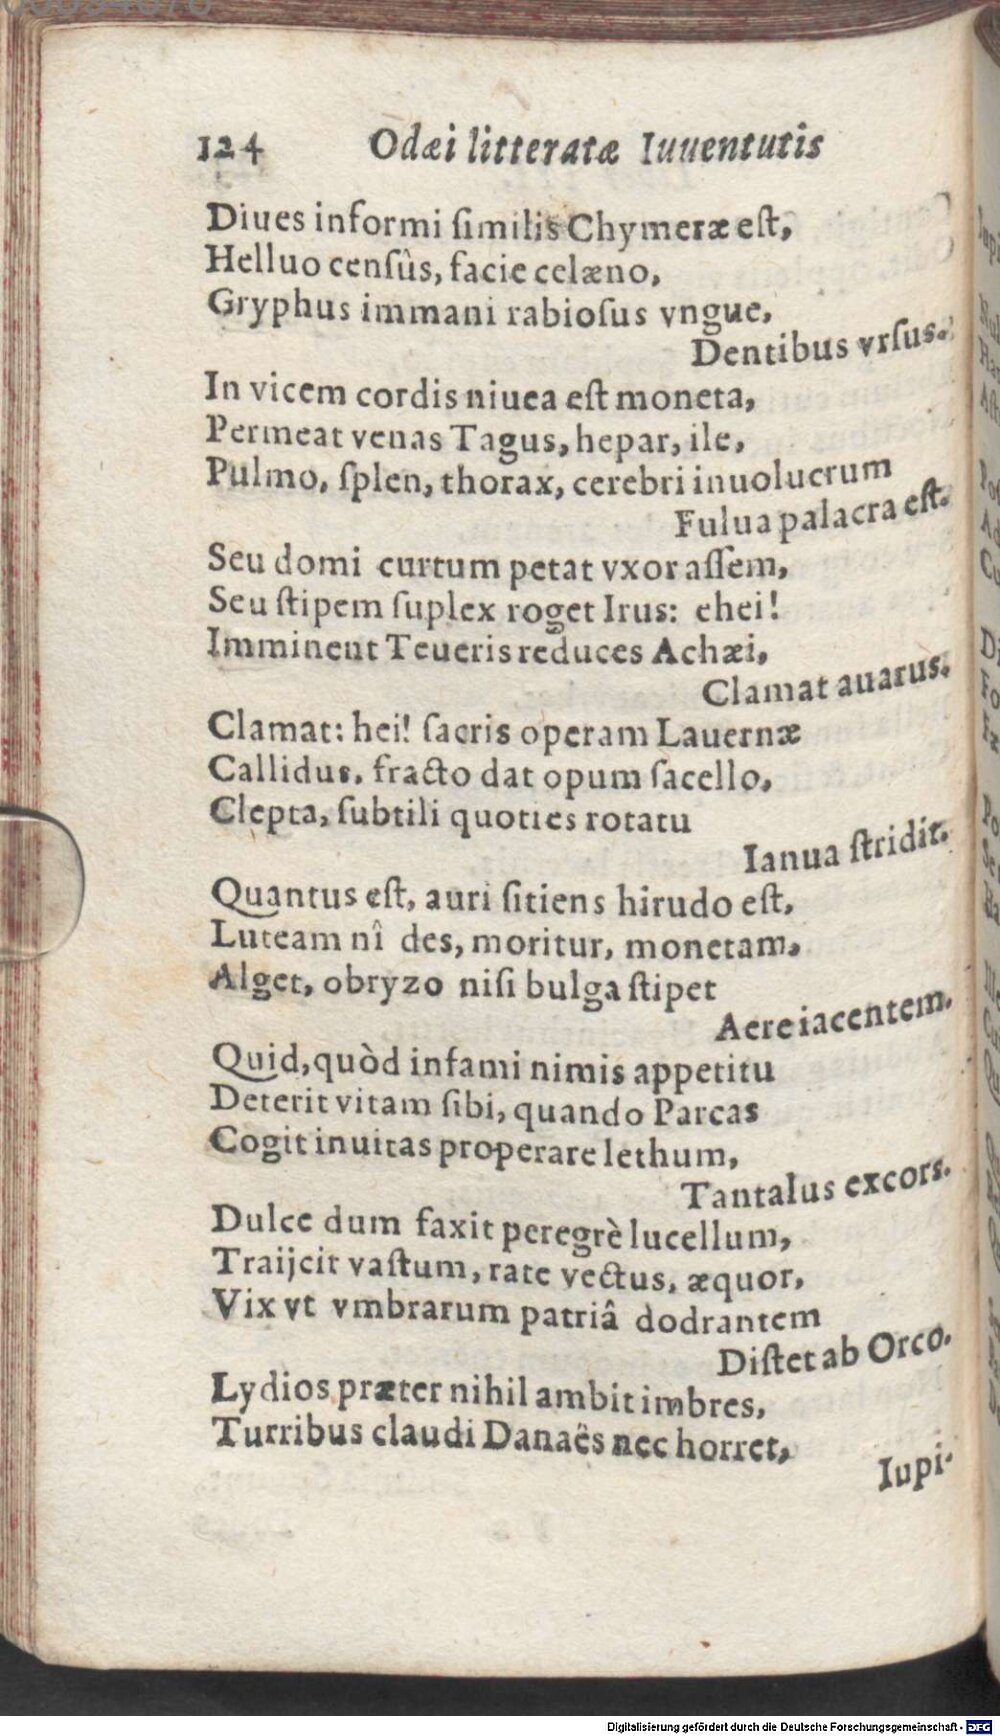 124 Odæi litteratæ Iuuentutis
Diues informi ſimilis Chymeræ eſt,
Helluo censûs, facie celæno,
Gryphus immani rabioſus vngue,
Dentibus vrſus.
In vicem cordis niuea eſt moneta,
Permeat venas Tagus, hepar, ile,
Pulmo, ſplen, thorax, cerebri inuolucrum
Fulua palacra eſt.
Seu domi curtum petat vxor aſſem,
Seu ſtipem ſuplex roget Irus: ehei!
Imminent Teueris reduces Achæi,
Clamat auarus.
Clamat: hei! ſacris operam Lauernæ
Callidus, fracto dat opum ſacello,
Clepta, ſubtili quoties rotatu
Ianua ſtridit.
Quantus eſt, auri ſitiens hirudo eſt,
Luteam nî des, moritur, monetam,
Alget, obryzo niſi bulga ſtipet
Aere iacentem.
Quid, quòd infami nimis appetitu
Deterit vitam ſibi, quando Parcas
Cogit inuitas properare lethum,
Tantalus excors.
Dulce dum faxit peregrè lucellum,
Traijcit vaſtum, rate vectus, æquor,
Vix vt vmbrarum patriâ dodrantem
Diſtet ab Orco.
Lydios præter nihil ambit imbres,
Turribus claudi Danaës nec horret,
Iupi-
Digitalisierung gefördert durch die Deutsche Forschungsgemeinschaft - DFG